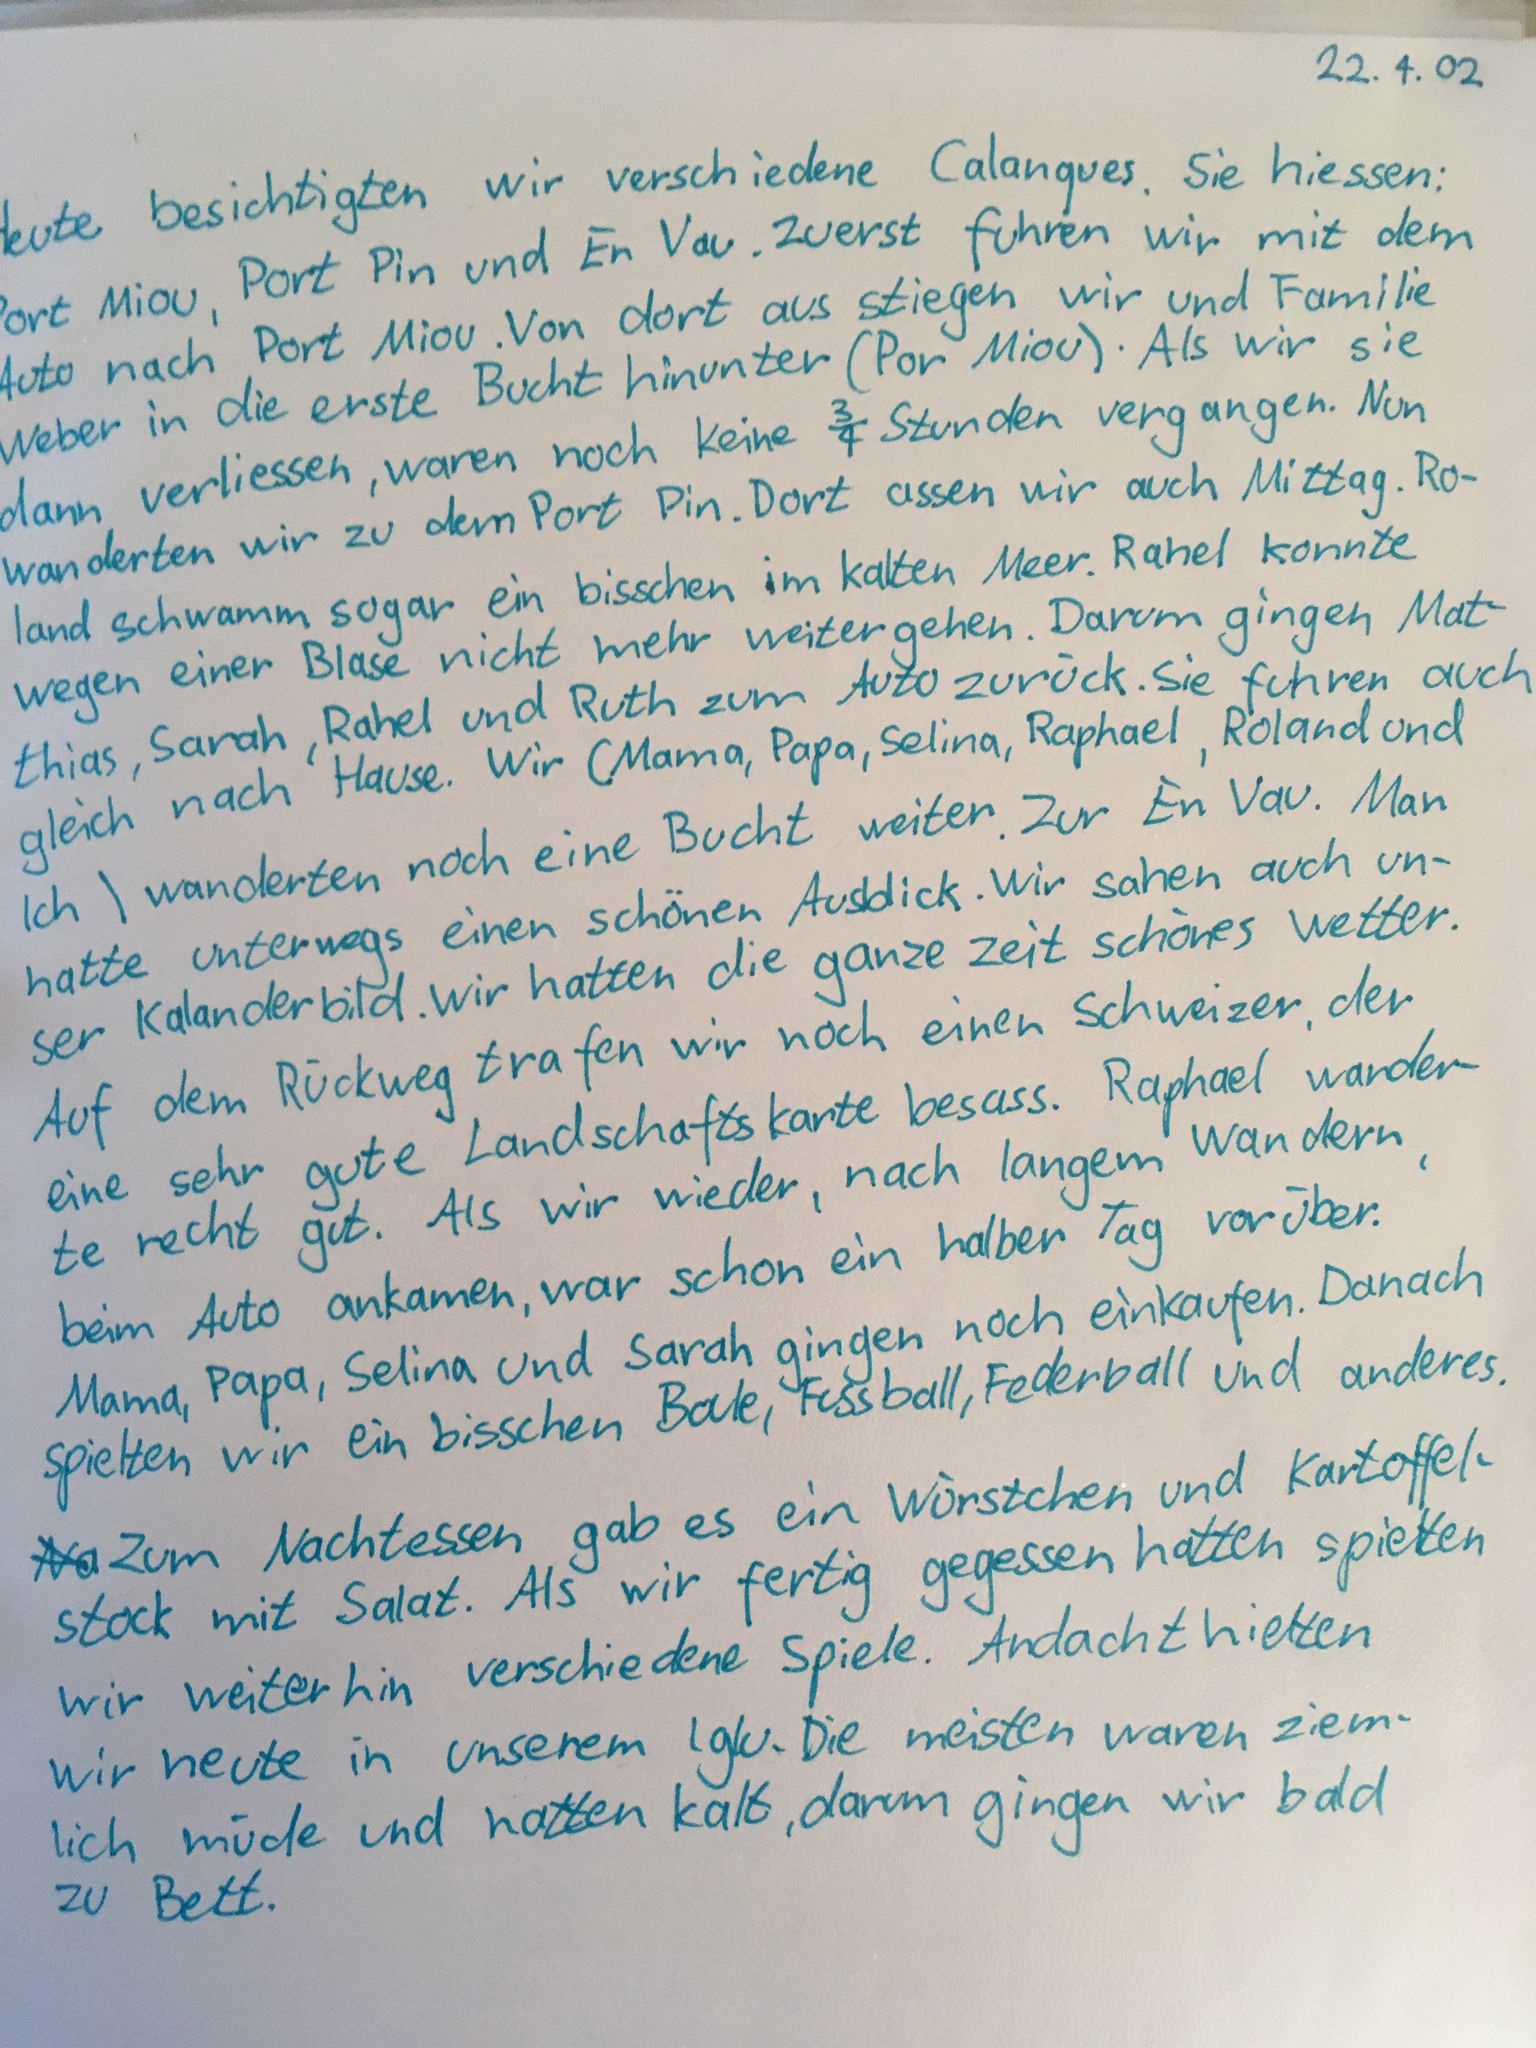 22.4.02
Heute besichtigten wir verschiedene Calanques. Sie hiessen:
Port Miou, Port Pin und En Vau. Zuerst fuhren wir mit dem
Auto nach Port Miou. Von dort aus stiegen wir und Familie
Weber in die erste Bucht hinunter (Por Miou). Als wir sie
dann verliessen, waren noch keine 3/4 Stunden vergangen. Nun
wanderten wir zu dem Port Pin. Dort assen wir auch Mittag. Ro-
land schwamm sogar ein bisschen im kalten Meer. Rahel konnte
wegen einer Blase nicht mehr weitergehen. Darum gingen Mat-
thias, Sarah, Rahel und Ruth zum Auto zurück. Sie fuhren auch
gleich nach Hause. Wir (Mama, Papa, Selina, Raphael, Roland und
Ich) wanderten noch eine Bucht weiter. Zur En Vau. Man
hatte unterwegs einen schönen Ausblick. Wir sahen auch un-
ser Kalanderbild. Wir hatten die ganze Zeit schönes Wetter.
Auf dem Rückweg trafen wir noch einen Schweizer, der
eine sehr gute Landschaftskarte besass. Raphael wander-
te recht gut. Als wir wieder, nach langem Wandern,
beim Auto ankamen, war schon ein halber Tag vorüber.
Mama, Papa, Selina und Sarah gingen noch einkaufen. Danach
spielten wir ein bisschen Boule, Fussball, Federball und anderes.
Zum Nachtessen gab es ein Würstchen und Kartoffel-
stock mit Salat. Als wir fertig gegessen hatten spielten
wir weiterhin verschiedene Spiele. Andacht hielten
wir heute in unserem Iglu. Die meisten waren ziem-
lich müde und hatten kalt, darum gingen wir bald
zu Bett.